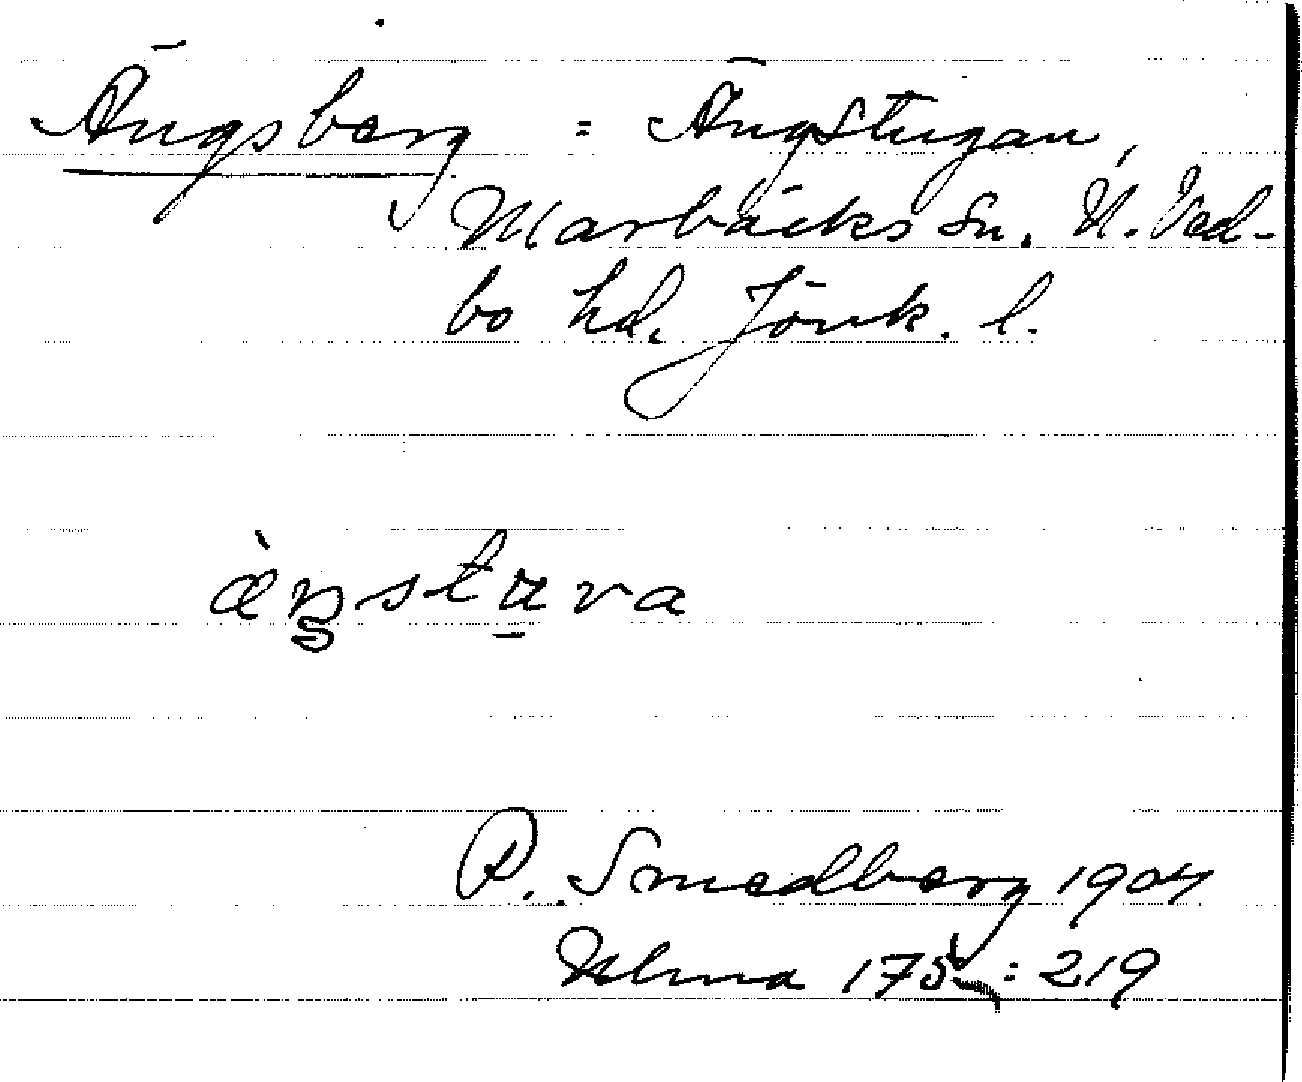 Ängsberg = Ängstugan,
Marbäcks sn. N. Ved-
bo hd. Jönk. l.
æ̀ŋstu̱va
P. Smedberg 1904
Ulma 175:219